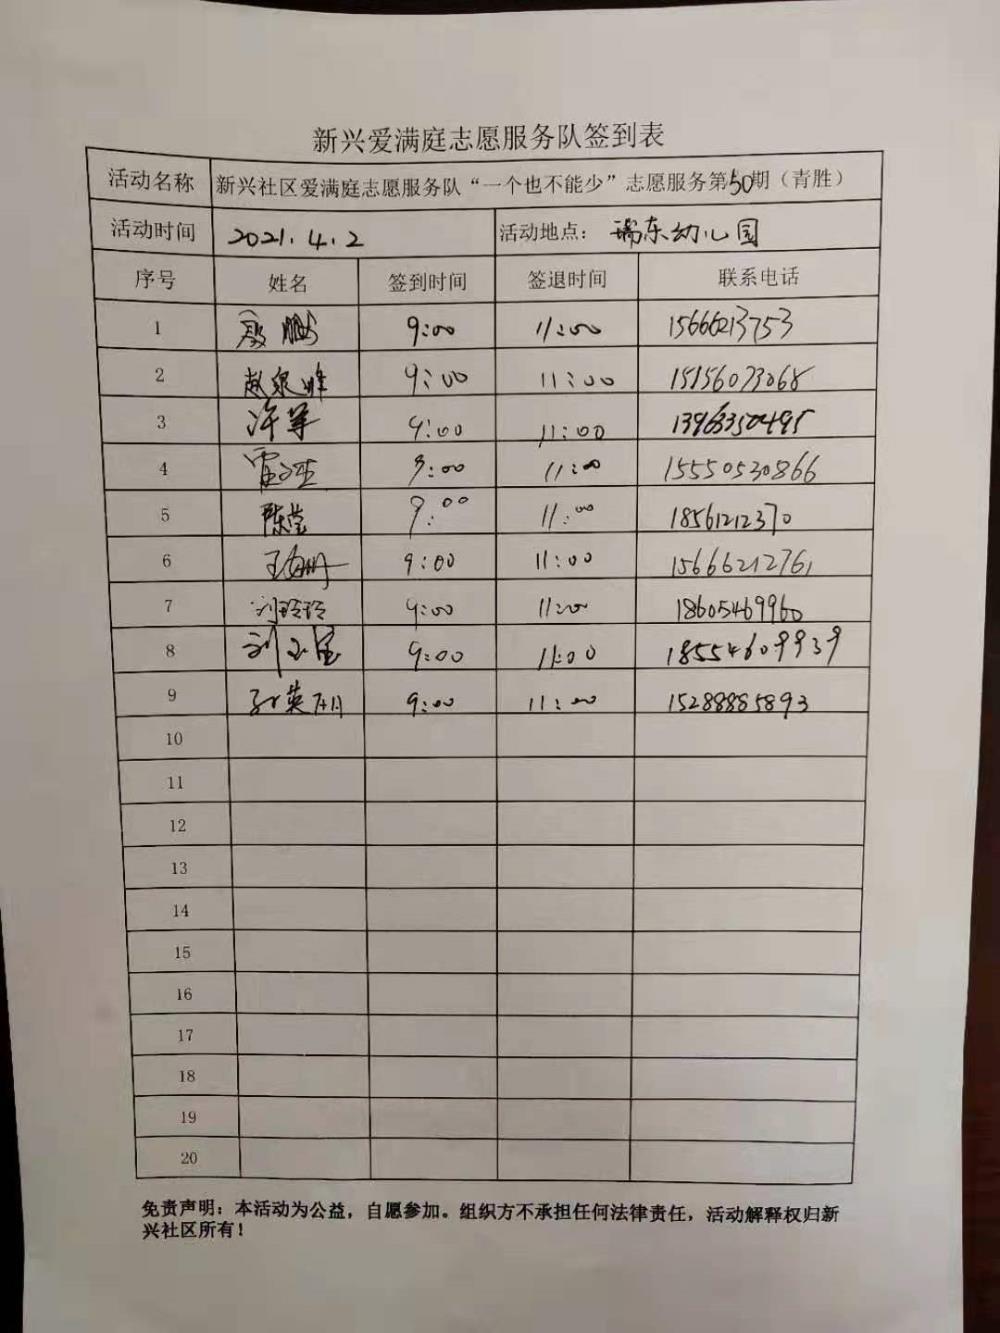 新兴爱满庭志愿服务队签到表
活动名称 新兴社区爱满庭志愿服务队“一个也不能少”志愿服务第50期（青胜）
活动时间 2021.4.2 活动地点： 瑞东幼儿园
序号 姓名 签到时间 签退时间 联系电话
1 鹏 9:00 11:00 15666213753
2 赵泉峰 9:00 11:00 15156073068
3 许军 9:00 11:00 13963350495
4 雷 9:00 11:00 15550530866
5 陈莹 9:00 11:00 18561212370
6 王 9:00 11:00 15666212761
7 刘玲玲 9:00 11:00 18605469960
8 刘玉宝 9:00 11:00 18554609939
9 孙英 9:00 11:00 15288885893
10
11
12
13
14
15
16
17
18
19
20
免责声明：本活动为公益，自愿参加。组织方不承担任何法律责任，活动解释权归新
兴社区所有！